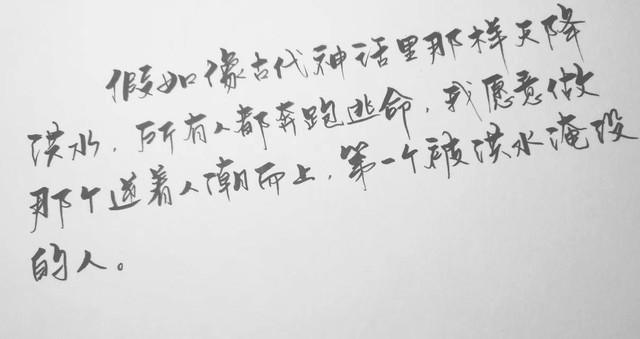 假如像古代神话里那样天降
洪水，所有人都奔跑逃命，我愿意做
那个逆着人潮而上，第一个被洪水淹没
的人。